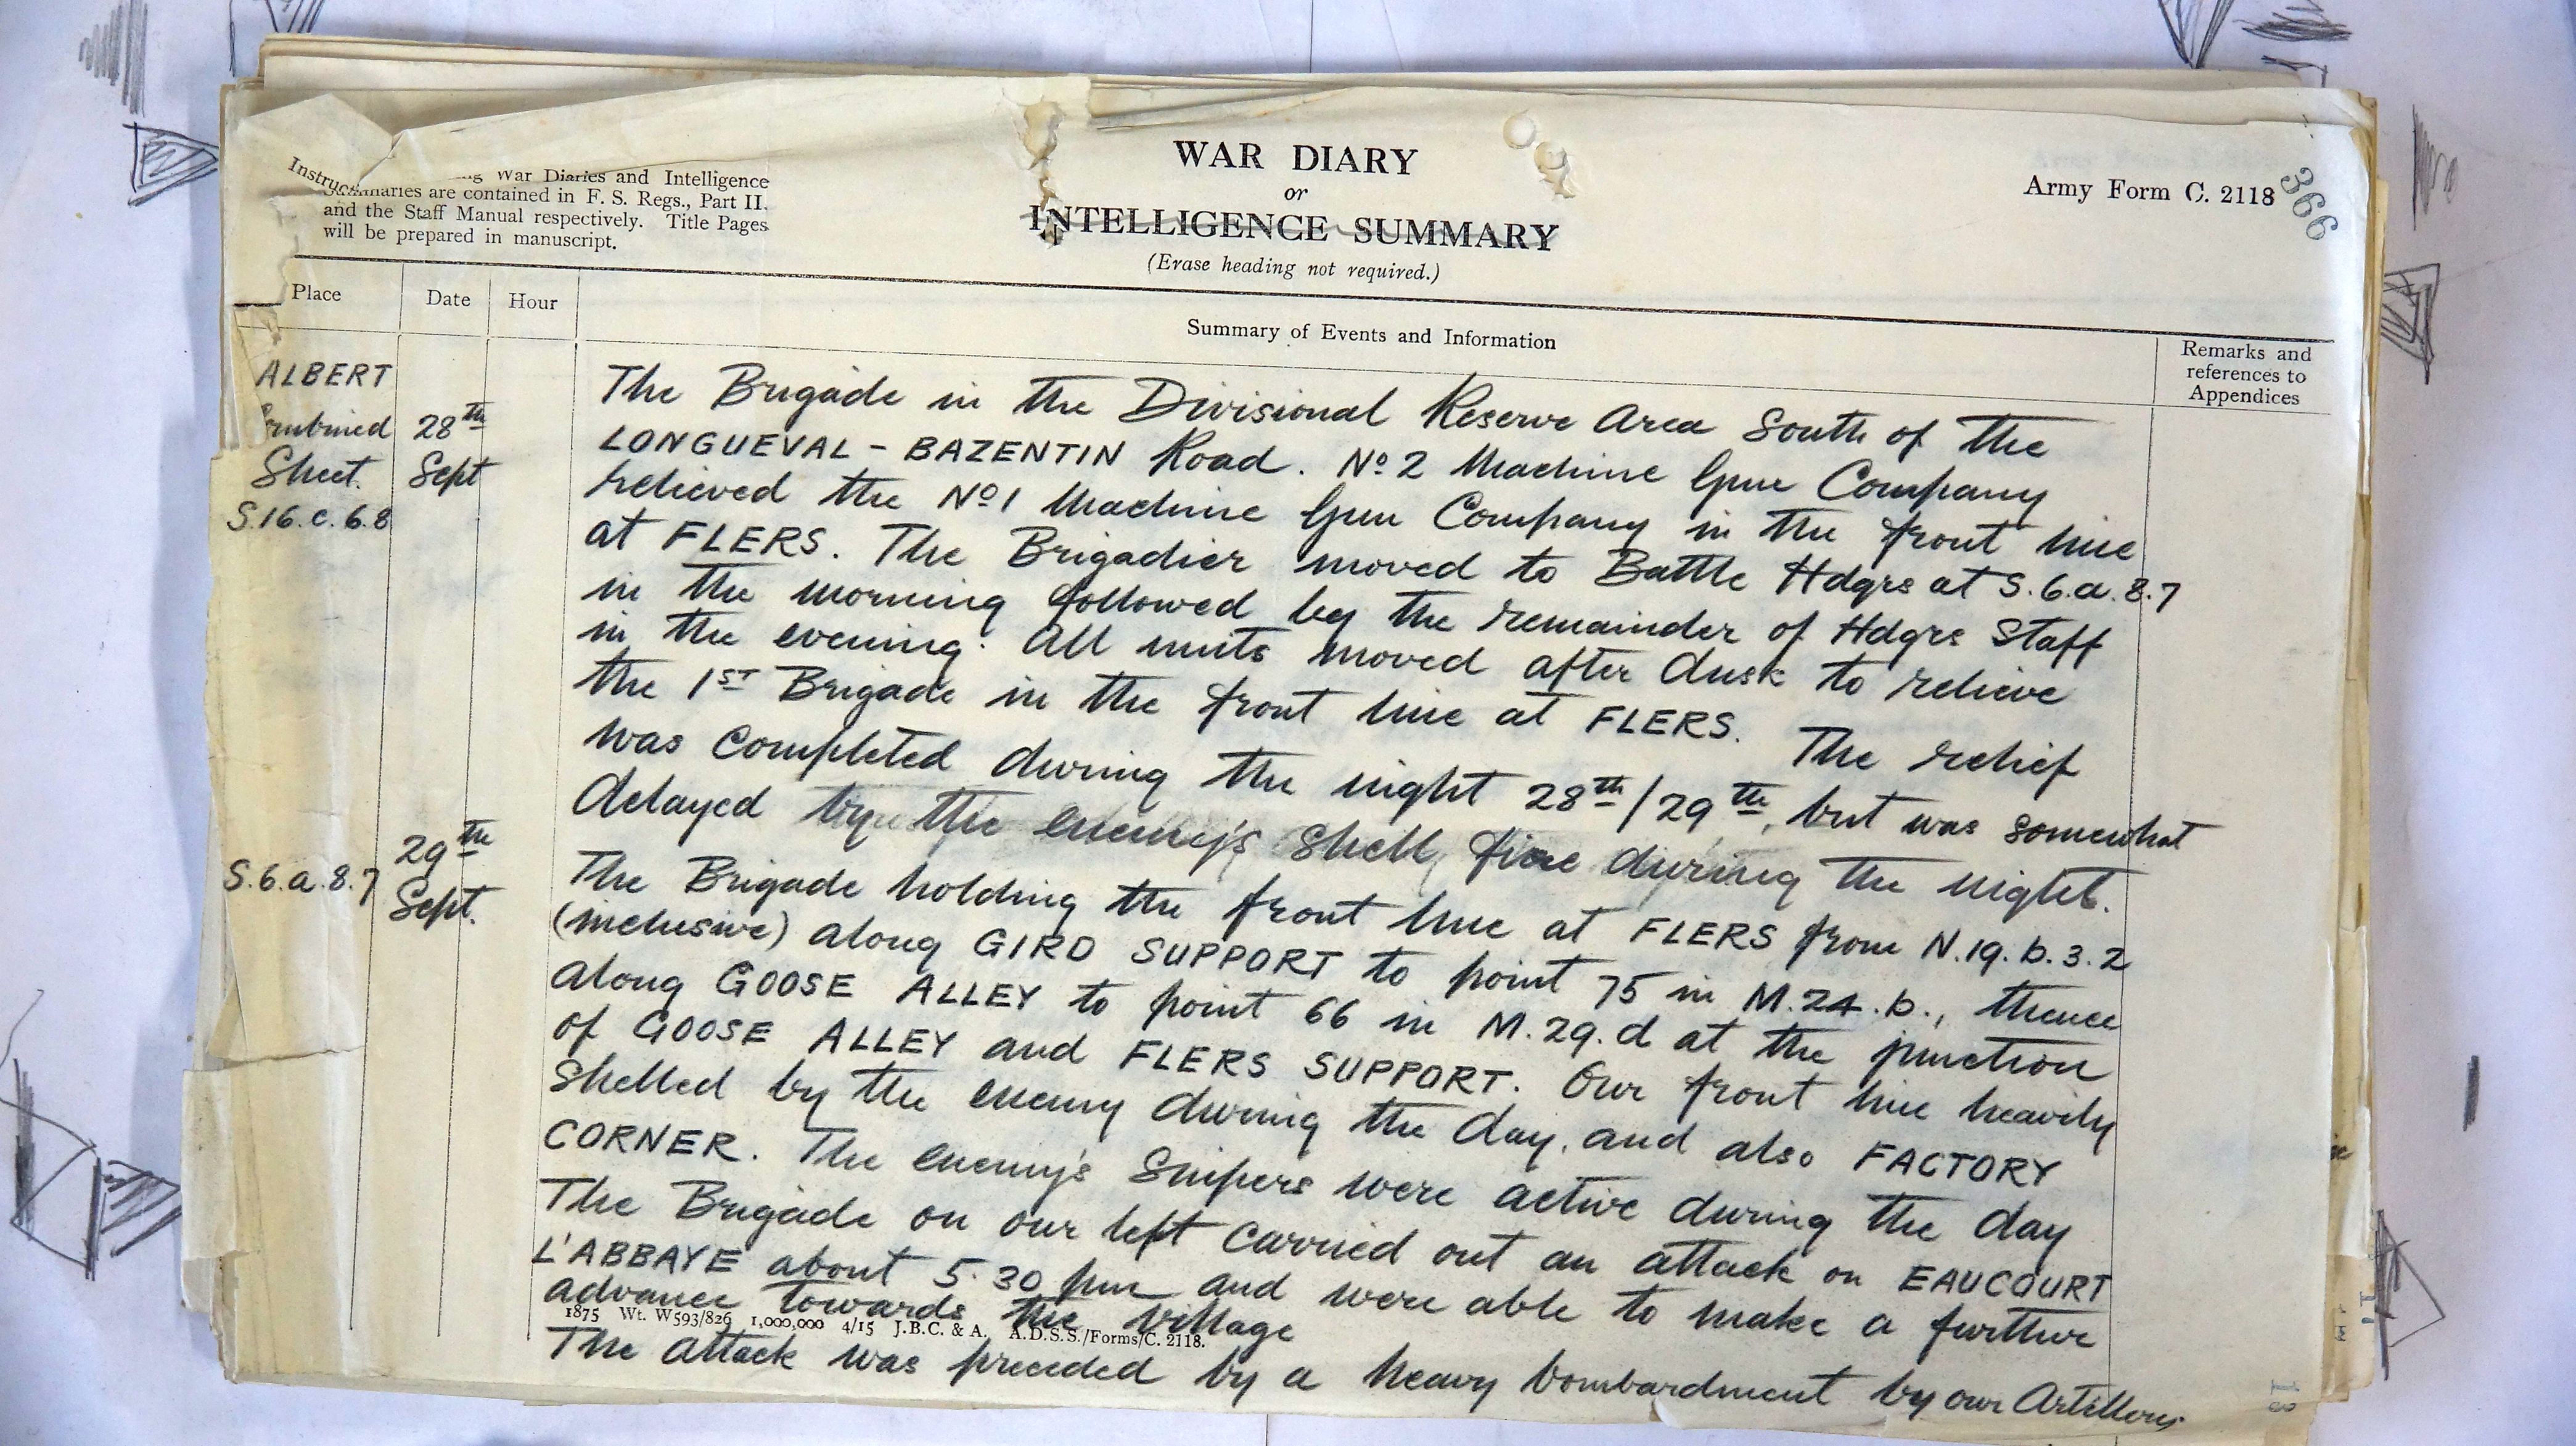 WAR DIARY
or
INTELLIGENCE SUMMARY
(Erase heading not required.)
Army Form C. 2118
366
War Diaries and Intelligence
Summaries are contained in F. S. Regs., Part II.
and the Staff Manual respectively. Title Pages
will be prepared in manuscript.
Place
Date
Hour
Summary of Events and Information
Remarks and
references to
Appendices
ALBERT
Combined
Sheet.
S.16.c.6.8
28th
Sept
The Brigade in the Divisional Reserve Area South of the
LONGUEVAL - BAZENTIN Road. No 2 Machine Gun Company
relieved the No 1 Machine Gun Company in the front line
at FLERS. The Brigadier moved to Battle Hdqrs at S.6.a.8.7
in the morning followed by the remainder of Hdqrs Staff
in the evening. All units moved after dusk to relieve
the 1ST Brigade in the front line at FLERS. The relief
was completed during the night 28th/29th, but was somewhat
delayed by the enemy's shell fire during the night.
S.6.a.8.7
29th
Sept.
The Brigade holding the front line at FLERS from N.19.b.3.2
(inclusive) along GIRD SUPPORT to point 75 in M.24.b., thence
along GOOSE ALLEY to point 66 in M.29.d at the junction
of GOOSE ALLEY and FLERS SUPPORT. Our front line heavily
shelled by the enemy during the day, and also FACTORY
CORNER. The enemy's Snipers were active during the day
The Brigade on our left carried out an attack on EAUCOURT
L'ABBAYE about 5.30 pm and were able to make a further
advance towards the village
1875 Wt. W593/826 1,000,000 4/15 J.B.C. & A. A.D.S.S./Forms/C. 2118.
The attack was preceded by a heavy bombardment by our Artillery